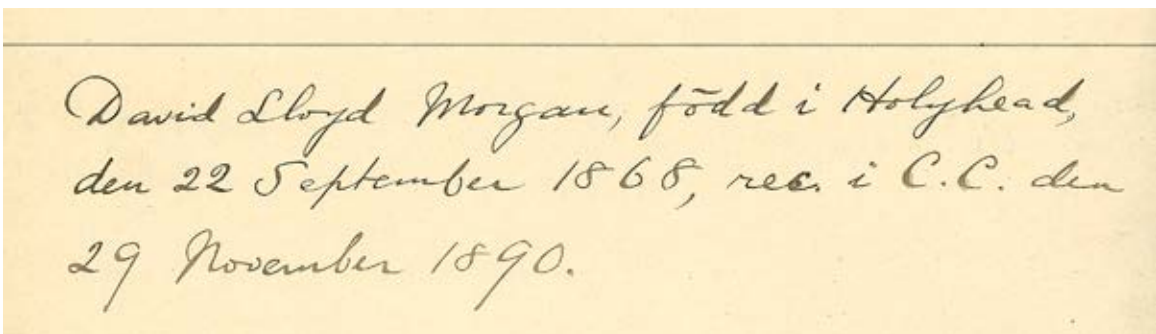 David Lloyd Morgan, född i Holyhead,
den 22 September 1868, rec. i C.C. den
29 November 1890.